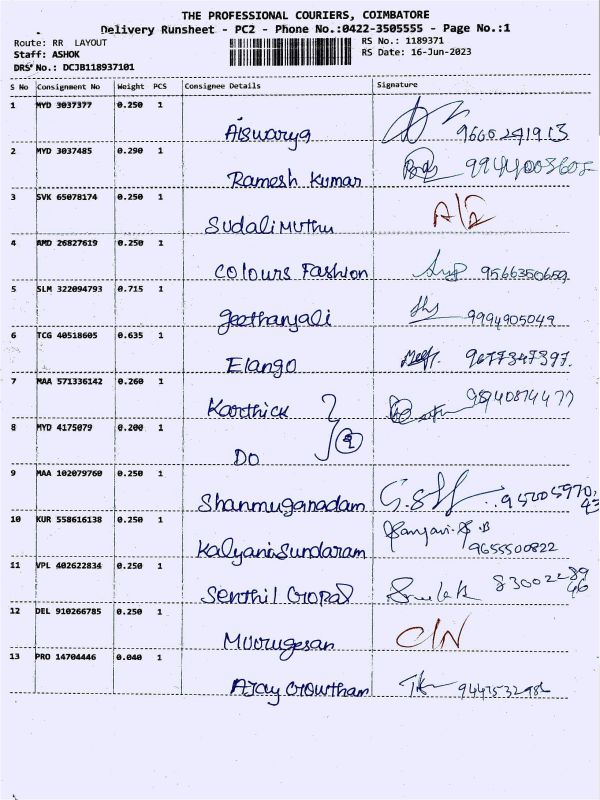 THE PROFESSIONAL COURIERS, COIMBATORE
Delivery Runsheet - PC2 - Phone No.:0422-3505555 - Page No.:1
Route: RR LAYOUT RS No.: 1189371
Staff: ASHOK RS Date: 16-Jun-2023
DRS No.: DCJB118937101
S No Consignment No Weight PCS Consignee Details Signature
1 MYD 3037377 0.250 1
Aiswarya
2 MYD 3037485 0.290 1
Ramesh Kumar
3 SVK 65078174 0.250 1
Sudalimuthu
4 AMD 26827619 0.250 1
Colours Fashion 9566350659
5 SLM 322094793 0.715 1
geethanjali 9994905049
6 TCG 40518605 0.635 1
Elango 9677347397.
7 MAA 571336142 0.260 1
Karthick
8 MYD 4175079 0.200 1
2
DO
9 MAA 102079760 0.250 1
Shanmuganadam
10 KUR 558616138 0.250 1
Kalyanisundaram 9655500822
11 VPL 402622834 0.250 1
Senthil Gopal
12 DEL 910266785 0.250 1
Muurugesan C/N
13 PRO 14704446 0.040 1
Ajay Gowtham